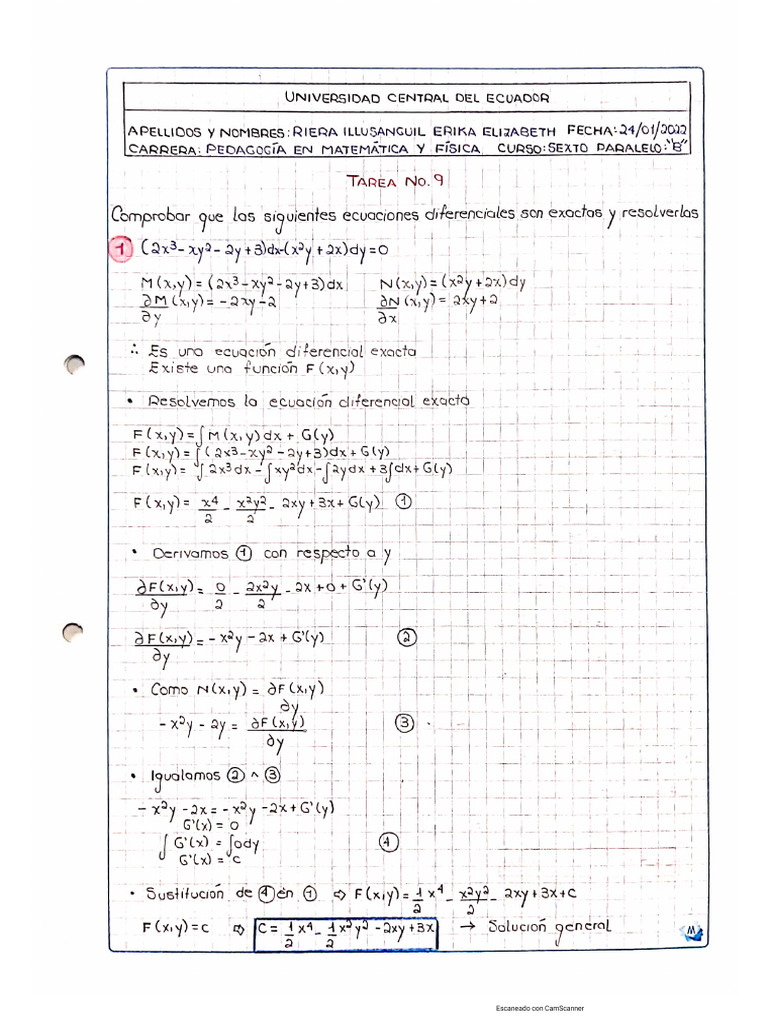 UNIVERSIDAD CENTRAL DEL ECUADOR
APELLIDOS Y NOMBRES: RIERA ILLUSANGUIL ERIKA ELIZABETH FECHA: 24/01/2022
CARRERA: PEDAGOGÍA EN MATEMÁTICA Y FÍSICA CURSO: SEXTO PARALELO: "B"
TAREA No. 9
Comprobar que las siguientes ecuaciones diferenciales son exactas y resolverlas
1 (2x³-xy²-2y+3)dx-(x²y+2x)dy=0
M(x,y)=(2x³-xy²-2y+3)dx N(x,y)=(x²y+2x)dy
∂M/∂y (x,y)=-2xy-2 ∂N/∂x (x,y)=2xy+2
∴ Es una ecuación diferencial exacta
Existe una función F(x,y)
• Resolvemos la ecuación diferencial exacta
F(x,y)=∫M(x,y)dx + G(y)
F(x,y)=∫(2x³-xy²-2y+3)dx+G(y)
F(x,y)=∫2x³dx-∫xy²dx-∫2ydx+3∫dx+G(y)
F(x,y)= x⁴/2 - x²y²/2 - 2xy+3x+G(y) ①
• Derivamos ① con respecto a y
∂F(x,y)/∂y = 0/2 - 2x²y/2 - 2x+0+G'(y)
∂F(x,y)/∂y = -x²y-2x+G'(y) ②
• Como N(x,y) = ∂F(x,y)/∂y
-x²y-2y = ∂F(x,y)/∂y ③
• Igualamos ② ^ ③
-x²y-2x=-x²y-2x+G'(y)
G'(x)=0
∫G'(x)=∫0dy ④
G'(x)=C
• Sustitución de ④ en ① ⇨ F(x,y)=1/2 x⁴ - x²y²/2 - 2xy+3x+C
F(x,y)=C ⇨ C= 1/2 x⁴ - 1/2 x²y² -2xy+3x → Solución general
M
Escaneado con CamScanner